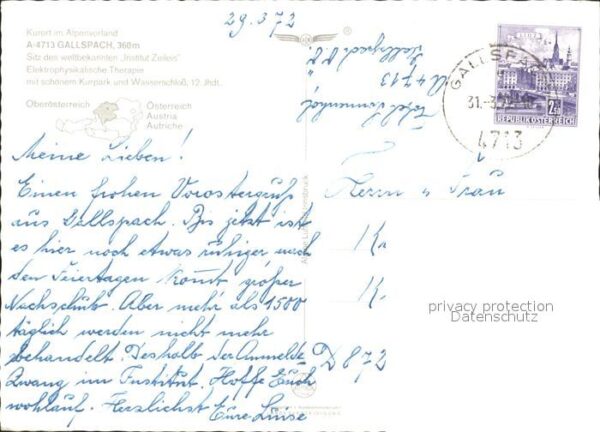 29.3.72
Kurort im Alpenvorland
A-4713 GALLSPACH, 360m
Sitz des weltbekannten „Institut Zeileis"
Elektrophysikalische Therapie
mit schönem Kurpark und Wasserschloß, 12. Jhdt.
Oberösterreich
Österreich
Austria
Autriche
Meine Lieben!
Einen frohen Vorostergruß
aus Gallspach. Bis jetzt ist
es hier noch etwas ruhiger nach
den Feiertagen kommt großer
Nachschub. Aber mehr als 1500
täglich werden nicht mehr
behandelt. Deshalb der Anmelde
Zwang im Institut. Hoffe Euch
wohlauf. Herzlichst Eure Luise
A 4713
Gallspach
GALLSPACH
31.-3.72
4713
LINZ
2.50
REPUBLIK ÖSTERREICH
Herrn u Frau
K.
K.
D 872
privacy protection
Datenschutz